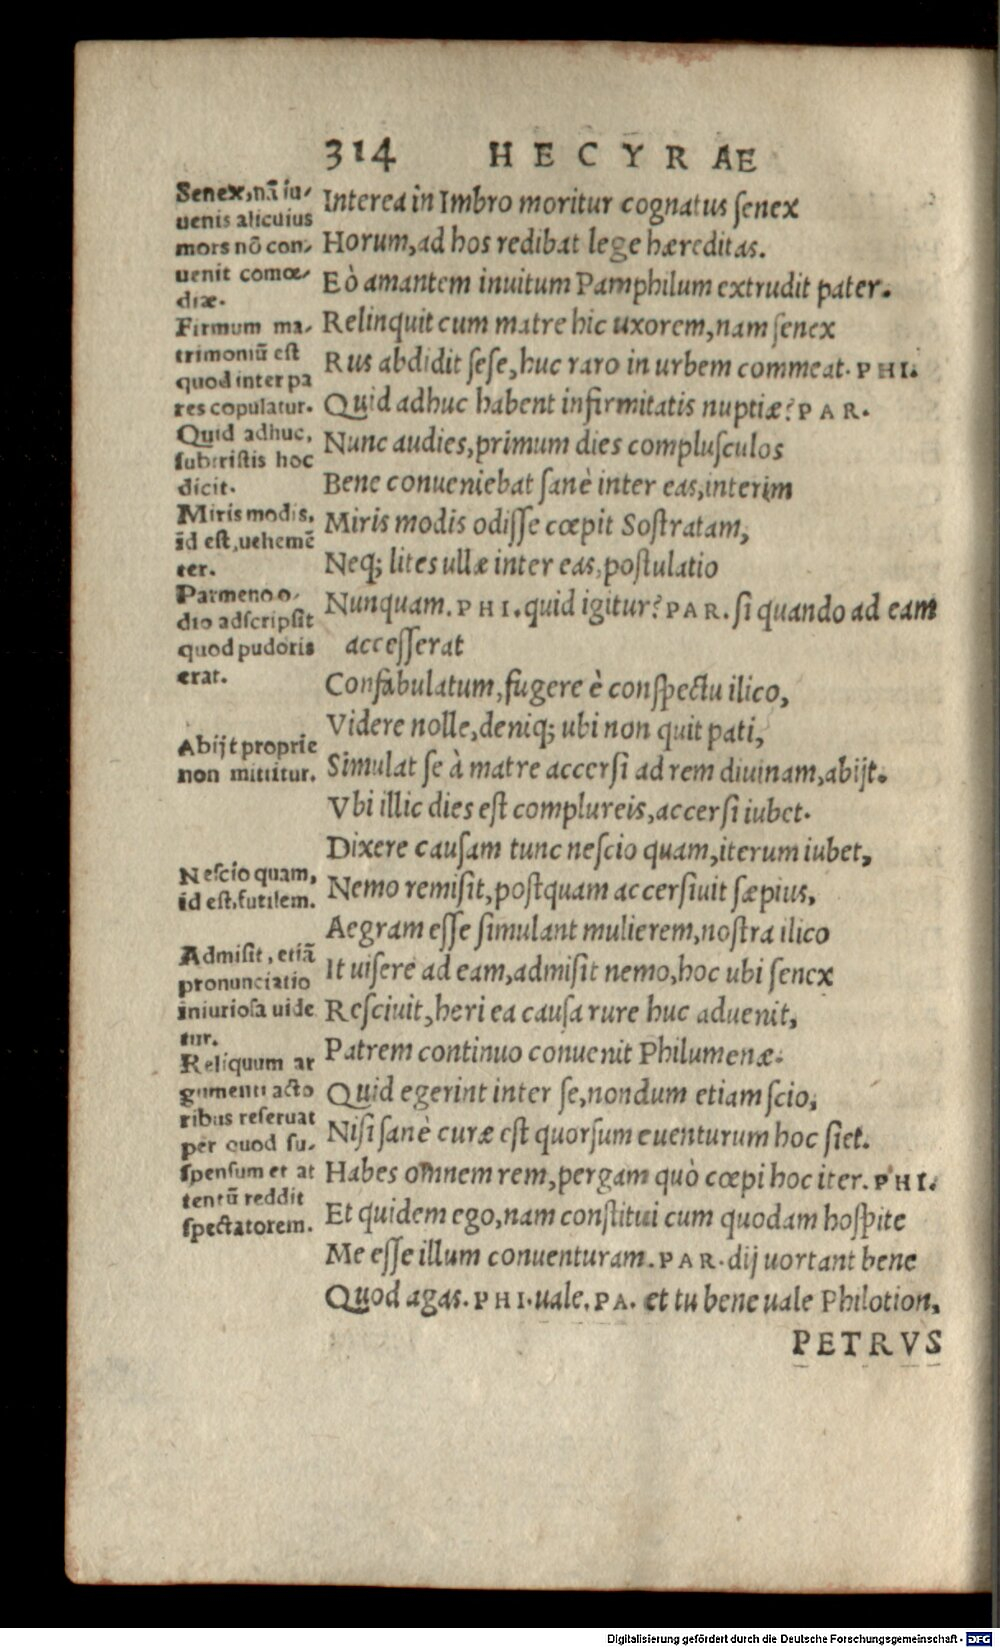 314 HECYRAE
Senex, nā iu-
uenis alicuius
mors nō con-
uenit comœ-
diæ.
Firmum ma-
trimoniū est
quod inter pa
res copulatur.
Quid adhuc,
subtristis hoc
dicit.
Miris modis,
id est, uehemē
ter.
Parmeno o-
dio adscripsit
quod pudoris
erat.
Abijt proprie
non mittitur.
Nescio quam,
id est, futilem.
Admisit, etiā
pronunciatio
iniuriosa uide
tur.
Reliquum ar
gumenti acto
ribus reseruat
per quod su-
spensum et at
tentū reddit
spectatorem.
Interea in Imbro moritur cognatus ſenex
Horum, ad hos redibat lege hæreditas.
Eò amantem inuitum Pamphilum extrudit pater.
Relinquit cum matre hic uxorem, nam ſenex
Rus abdidit ſeſe, huc raro in urbem commeat. PHI.
Quid adhuc habent infirmitatis nuptiæ? PAR.
Nunc audies, primum dies compluſculos
Bene conueniebat ſanè inter eas, interim
Miris modis odiſſe cœpit Soſtratam,
Neq; lites ullæ inter eas, poſtulatio
Nunquam. PHI. quid igitur? PAR. ſi quando ad eam
acceſſerat
Confabulatum, fugere è conſpectu ilico,
Videre nolle, deniq; ubi non quit pati,
Simulat ſe à matre accerſi ad rem diuinam, abijt.
Vbi illic dies eſt complureis, accerſi iubet.
Dixere cauſam tunc neſcio quam, iterum iubet,
Nemo remiſit, poſtquam accerſiuit ſæpius,
Aegram eſſe ſimulant mulierem, noſtra ilico
It uiſere ad eam, admiſit nemo, hoc ubi ſenex
Reſciuit, heri ea cauſa rure huc aduenit,
Patrem continuo conuenit Philumenæ.
Quid egerint inter ſe, nondum etiam ſcio,
Niſi ſanè curæ eſt quorſum euenturum hoc ſiet.
Habes omnem rem, pergam quò cœpi hoc iter. PHI.
Et quidem ego, nam conſtitui cum quodam hoſpite
Me eſſe illum conuenturam. PAR. dij uortant bene
Quod agas. PHI. uale. PA. et tu bene uale Philotion,
PETRVS
Digitalisierung gefördert durch die Deutsche Forschungsgemeinschaft - DFG